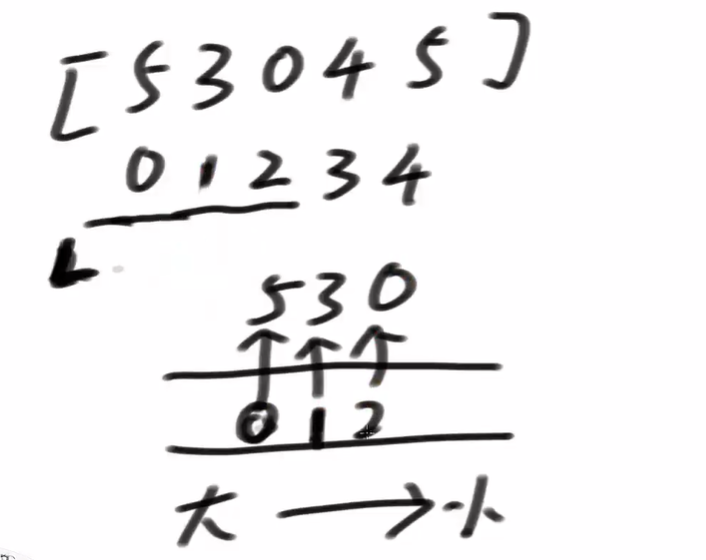 [ 5 3 0 4 5 ]
0 1 2 3 4
L
5 3 0
↑ ↑ ↑
0 1 2
大 → 小